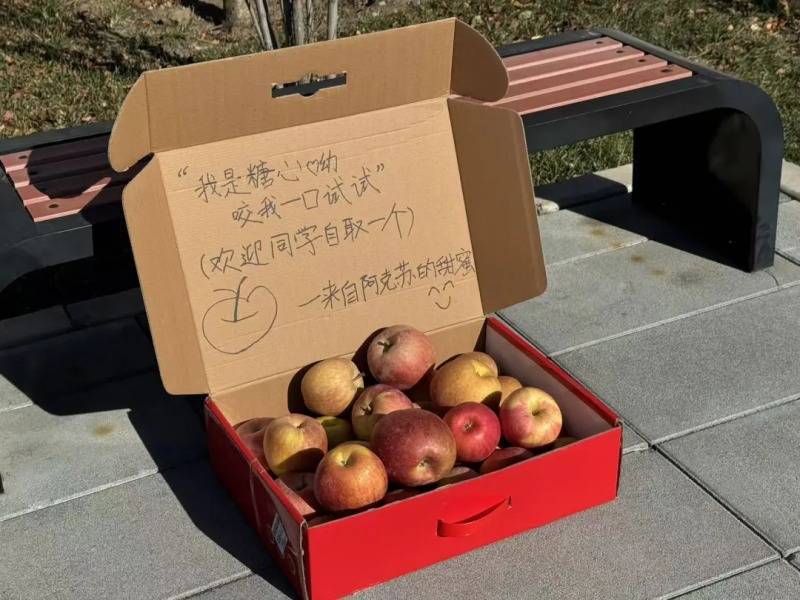 “我是糖心♡呦
咬我一口试试”
(欢迎同学自取一个)
—来自阿克苏的甜蜜